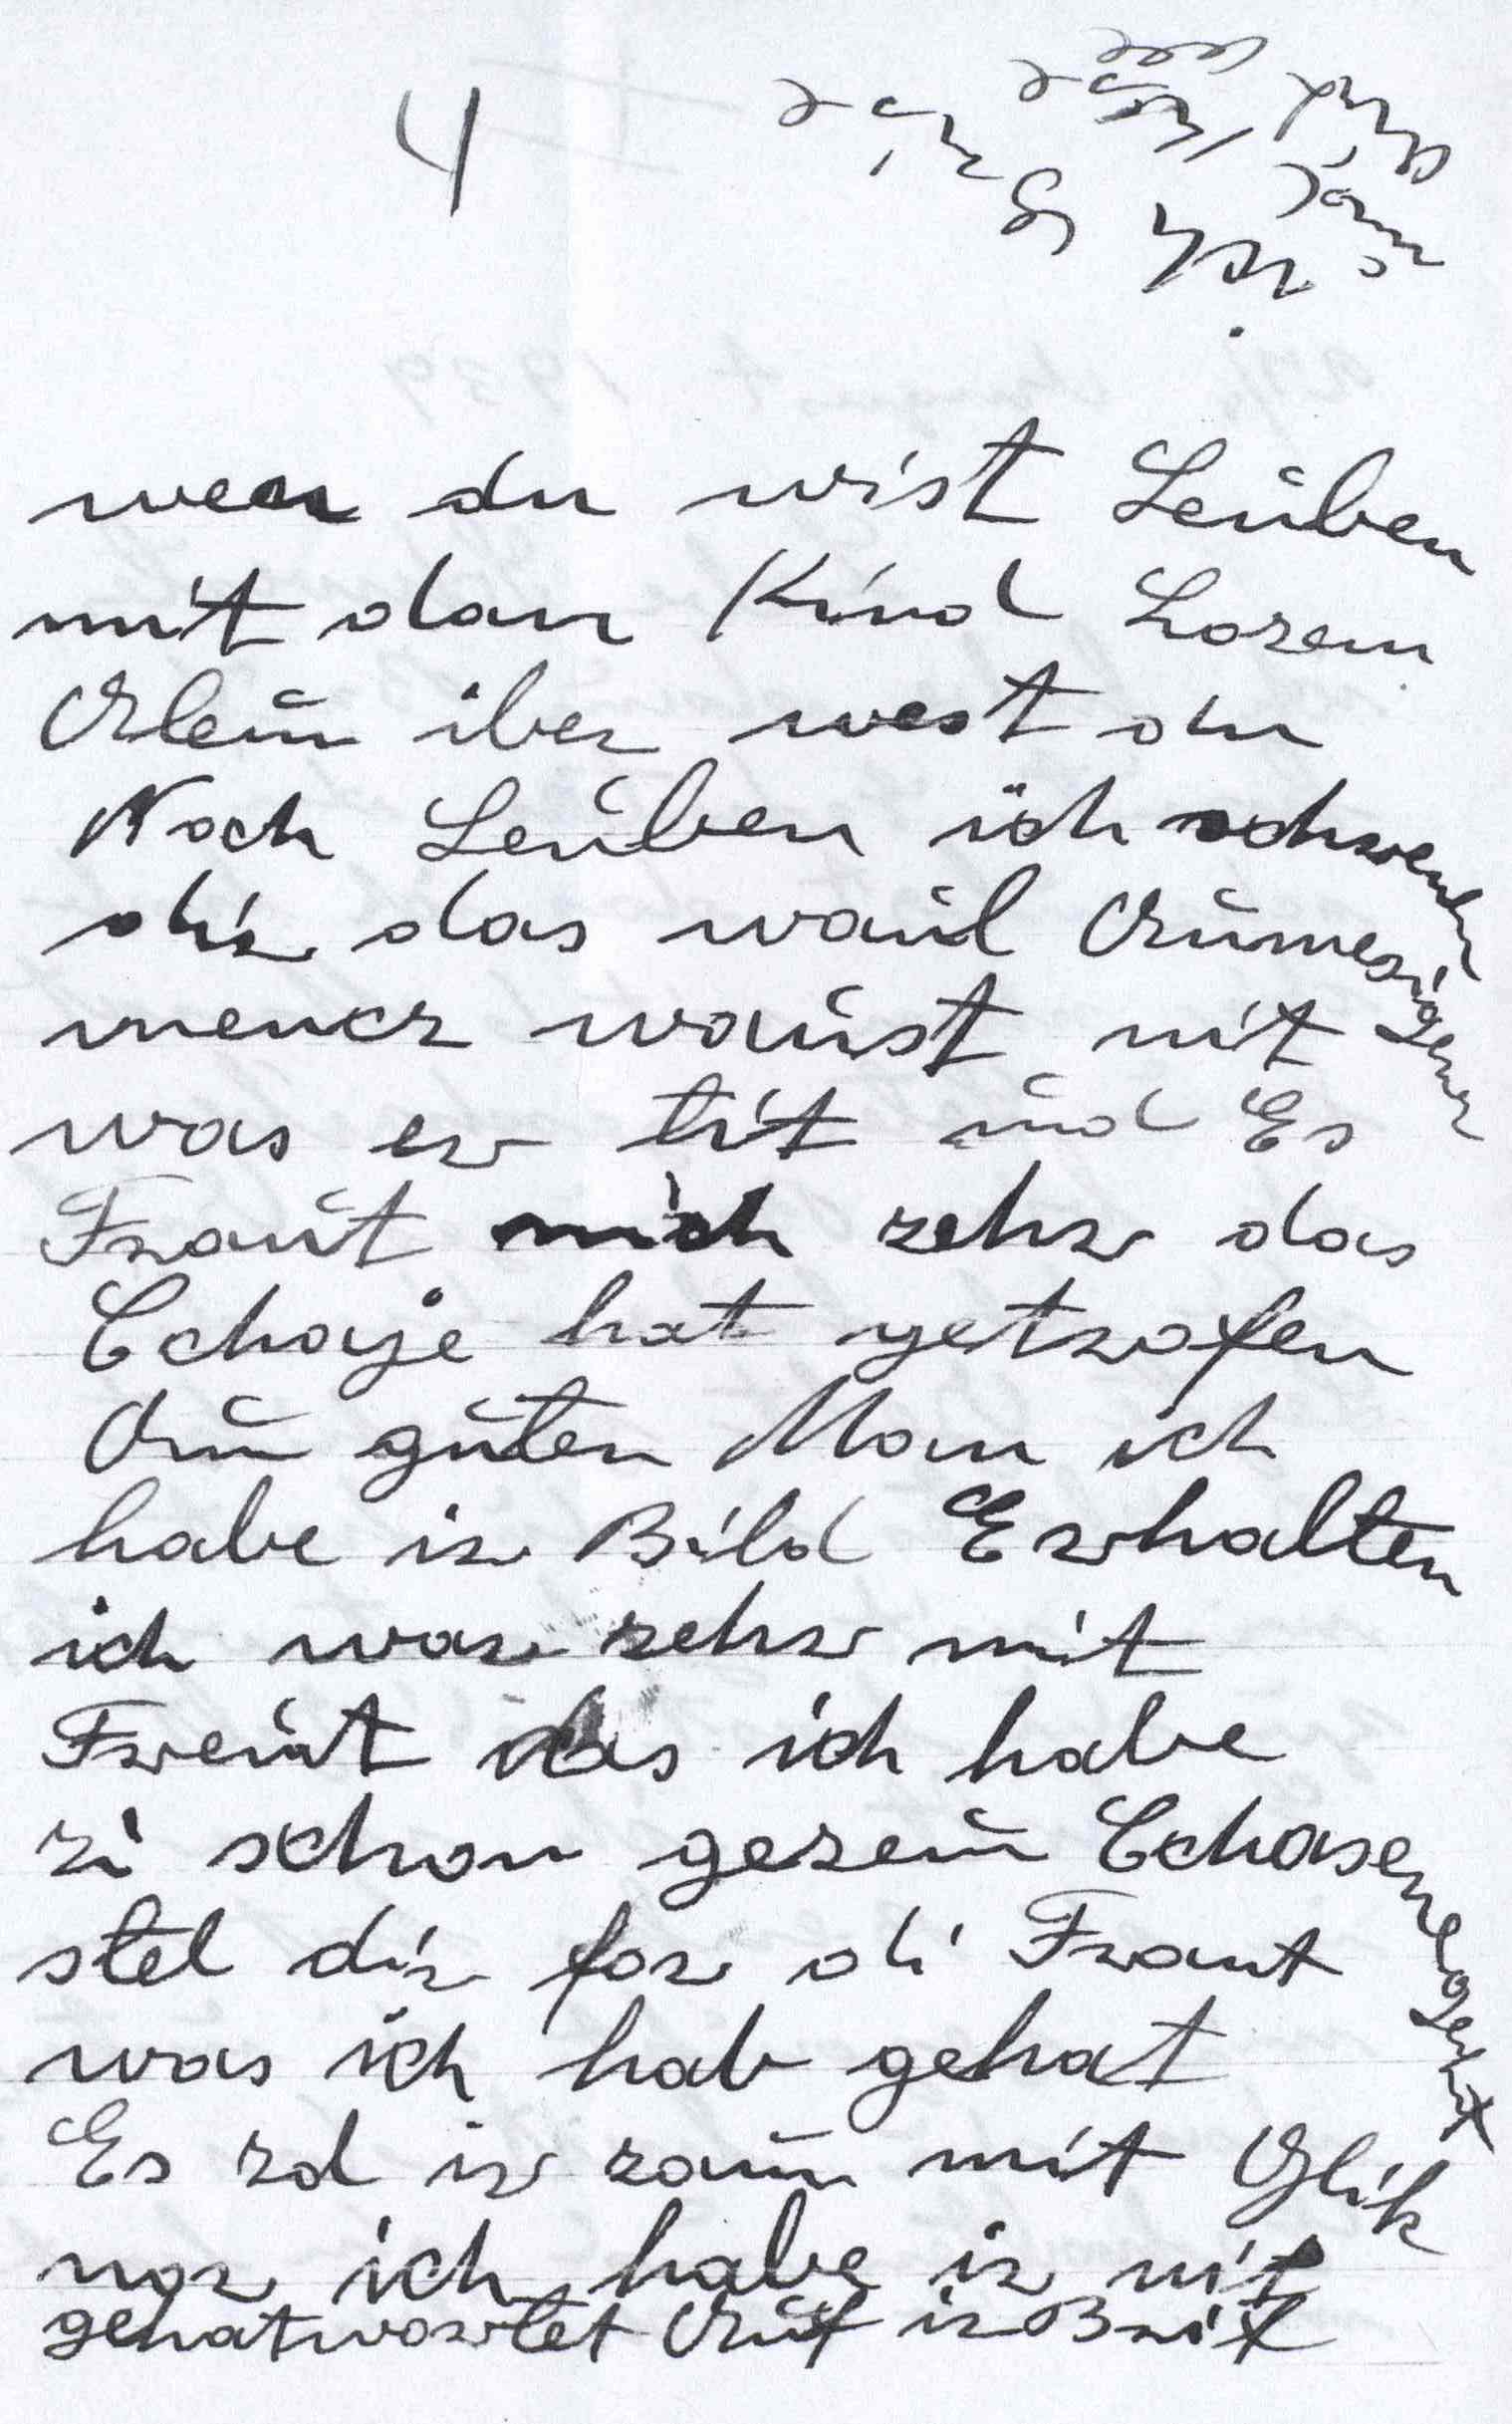 4
wen du wist Leüben
mit dan Kind Lozem
Alein iber west du
Noch Leüben ich schreub
dir das waül Aümezigen
mencz waüst nit
was er tit üd Es
Fraüt mich zehr das
Cchaje hat getrofen
Aün güten Man ich
habe ir Bild Erhalten
ich war zehr mit
Freüt das ich habe
zi schon gezein Cchasene gehat
stel dir for di Fraut
was ich hab gehat
Es zol ir zaün mit Glik
nor ich habe ir nit
gehatwortet Aüf ir Brif